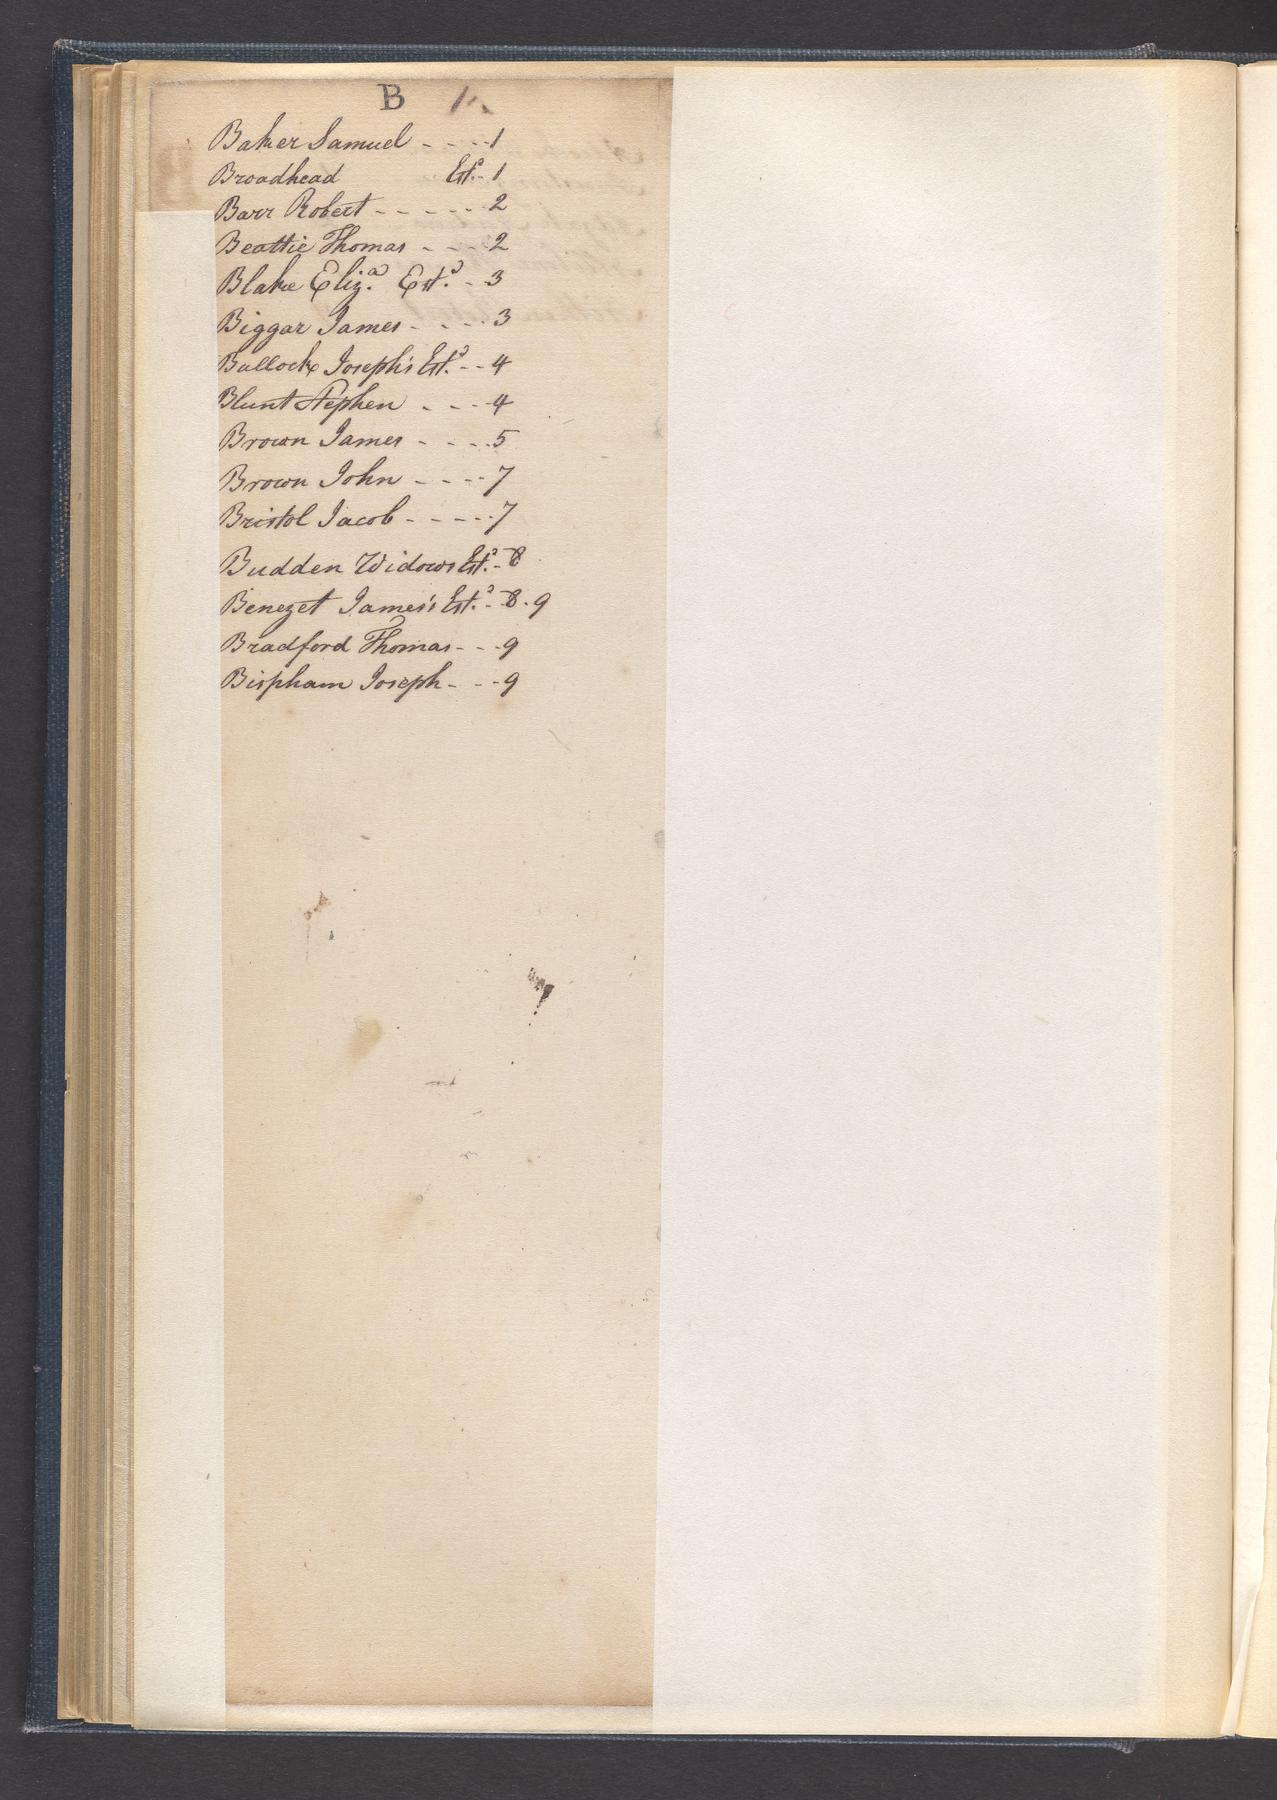 B
Baker Samuel - - - - 1
Broadhead Est.e - 1
Barr Robert - - - - - 2
Beattie Thomas - - - 2
Blake Eliz.a Est.e - 3
Biggar James - - - - 3
Bullock Joseph's Est.e - - 4
Blunt Stephen - - - 4
Brown James - - - - 5
Brown John - - - - 7
Bristol Jacob - - - - - 7
Budden Widows Est.e - 8
Benezet James's Est.e - 8 - 9
Bradford Thomas - - - 9
Bispham Joseph - - - 9